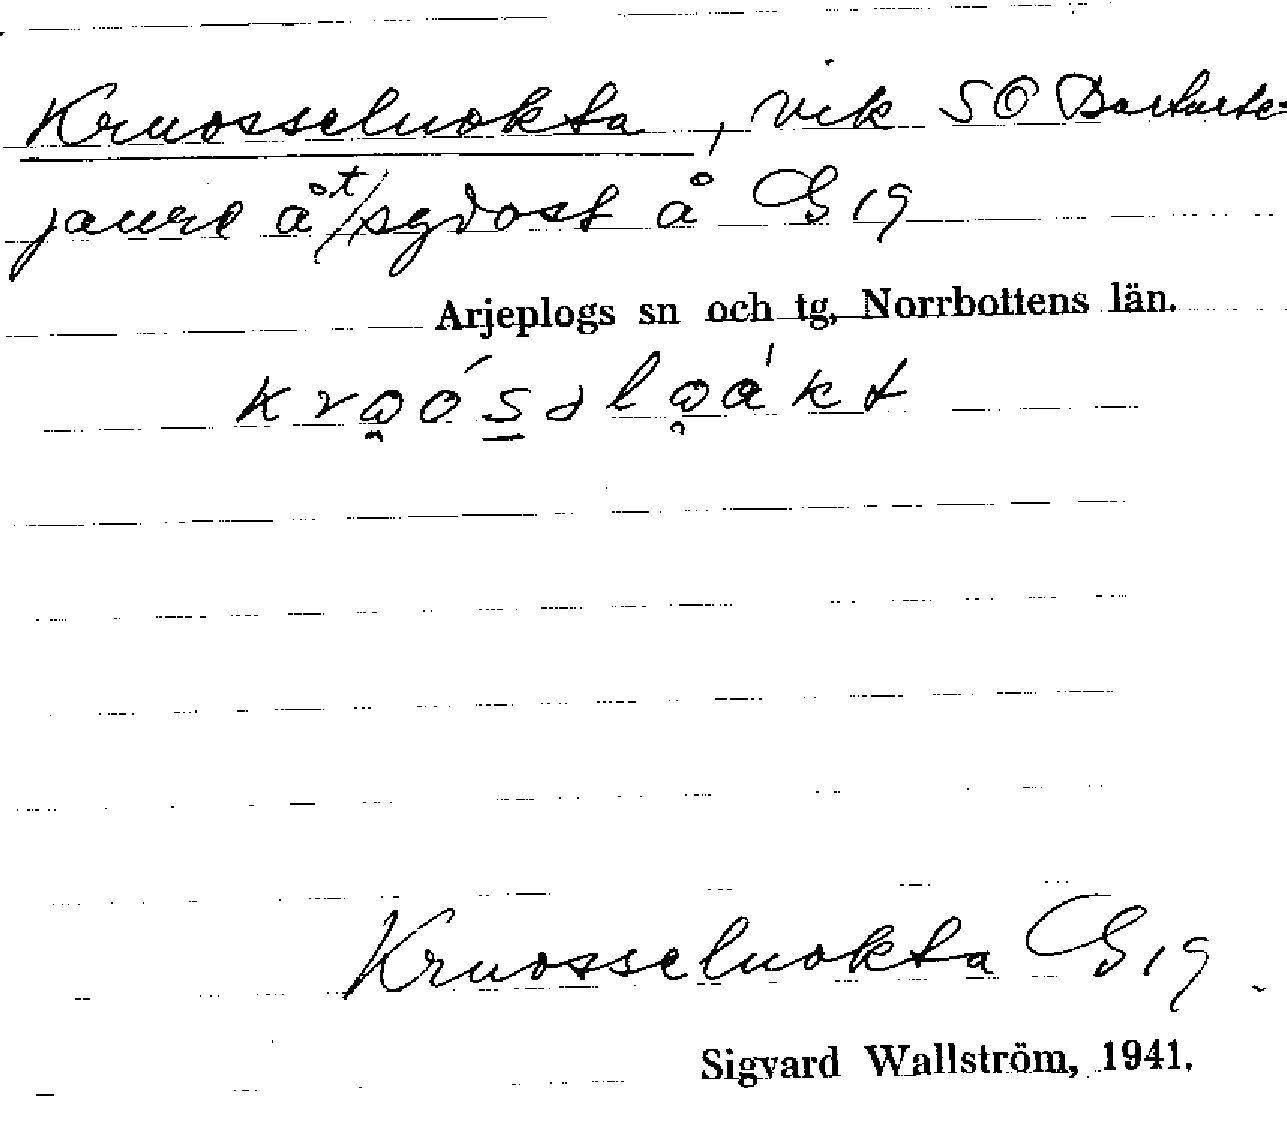 Kruosseluokta, vik SO Dartarte-
jaure åt sydost å G 19
Arjeplogs sn och tg, Norrbottens län.
Kruosseluokta G 19
Sigvard Wallström, 1941.